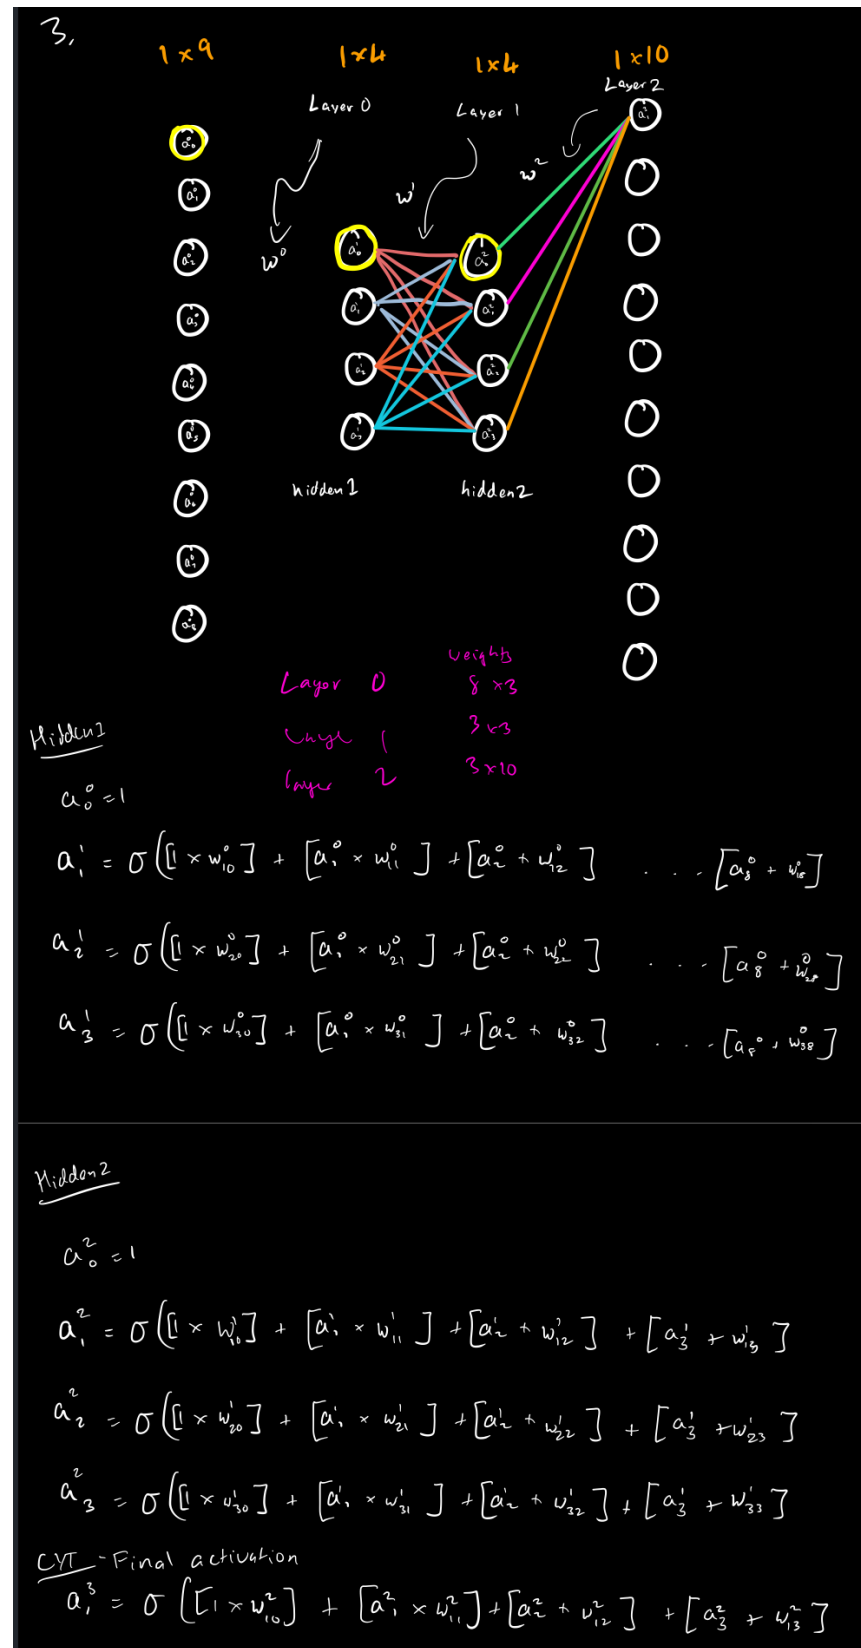 3.
1 x 9 1x4 1x4 1x10
Layer 0 Layer 1 Layer 2
w⁰ w¹ w²
a₀⁰ a₀¹ a₀² a₁²
a₁⁰ a₁¹ a₁²
a₂⁰ a₂¹ a₂²
a₃⁰ a₃¹ a₃²
a₄⁰
a₅⁰
a₆⁰
a₇⁰
a₈⁰
hidden1 hidden2
weights
Layer 0 8 x3
Layer 1 3x3
layer 2 3x10
Hidden1
a₀⁰ = 1
a₁¹ = σ([1 × w₁₀⁰] + [a₁⁰ × w₁₁⁰] + [a₂⁰ + w₁₂⁰] . . . - [a₈⁰ + w₁₈⁰]
a₂¹ = σ([1 × w₂₀⁰] + [a₁⁰ × w₂₁⁰] + [a₂⁰ + w₂₂⁰] . . . - [a₈⁰ + w₂₈⁰]
a₃¹ = σ([1 × w₃₀⁰] + [a₁⁰ × w₃₁⁰] + [a₂⁰ + w₃₂⁰] . . . - [a₈⁰ + w₃₈⁰]
Hidden2
a₀² = 1
a₁² = σ([1 × w₁₀¹] + [a₁¹ × w₁₁¹] + [a₂¹ + w₁₂¹] + [a₃¹ + w₁₃¹]
a₂² = σ([1 × w₂₀¹] + [a₁¹ × w₂₁¹] + [a₂¹ + w₂₂¹] + [a₃¹ + w₂₃¹]
a₃² = σ([1 × w₃₀¹] + [a₁¹ × w₃₁¹] + [a₂¹ + w₃₂¹] + [a₃¹ + w₃₃¹]
CYT - Final activation
a₁³ = σ([1 × w₁₀²] + [a₁² × w₁₁²] + [a₂² + w₁₂²] + [a₃² + w₁₃²]